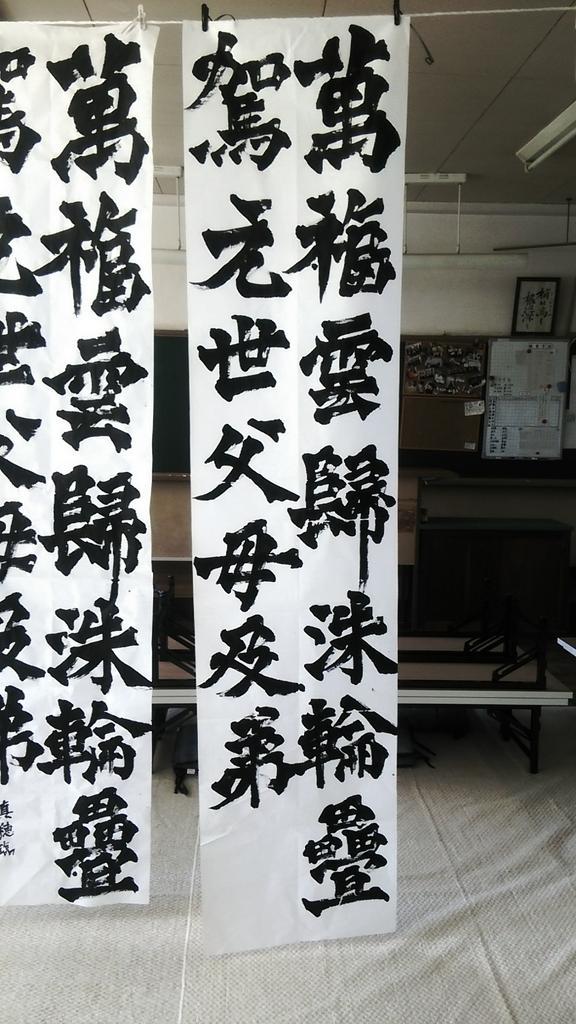 萬福雲歸洙輪疊
駕元世父母及弟
萬福雲歸洙輪疊
駕元世父母及弟
真穂臨